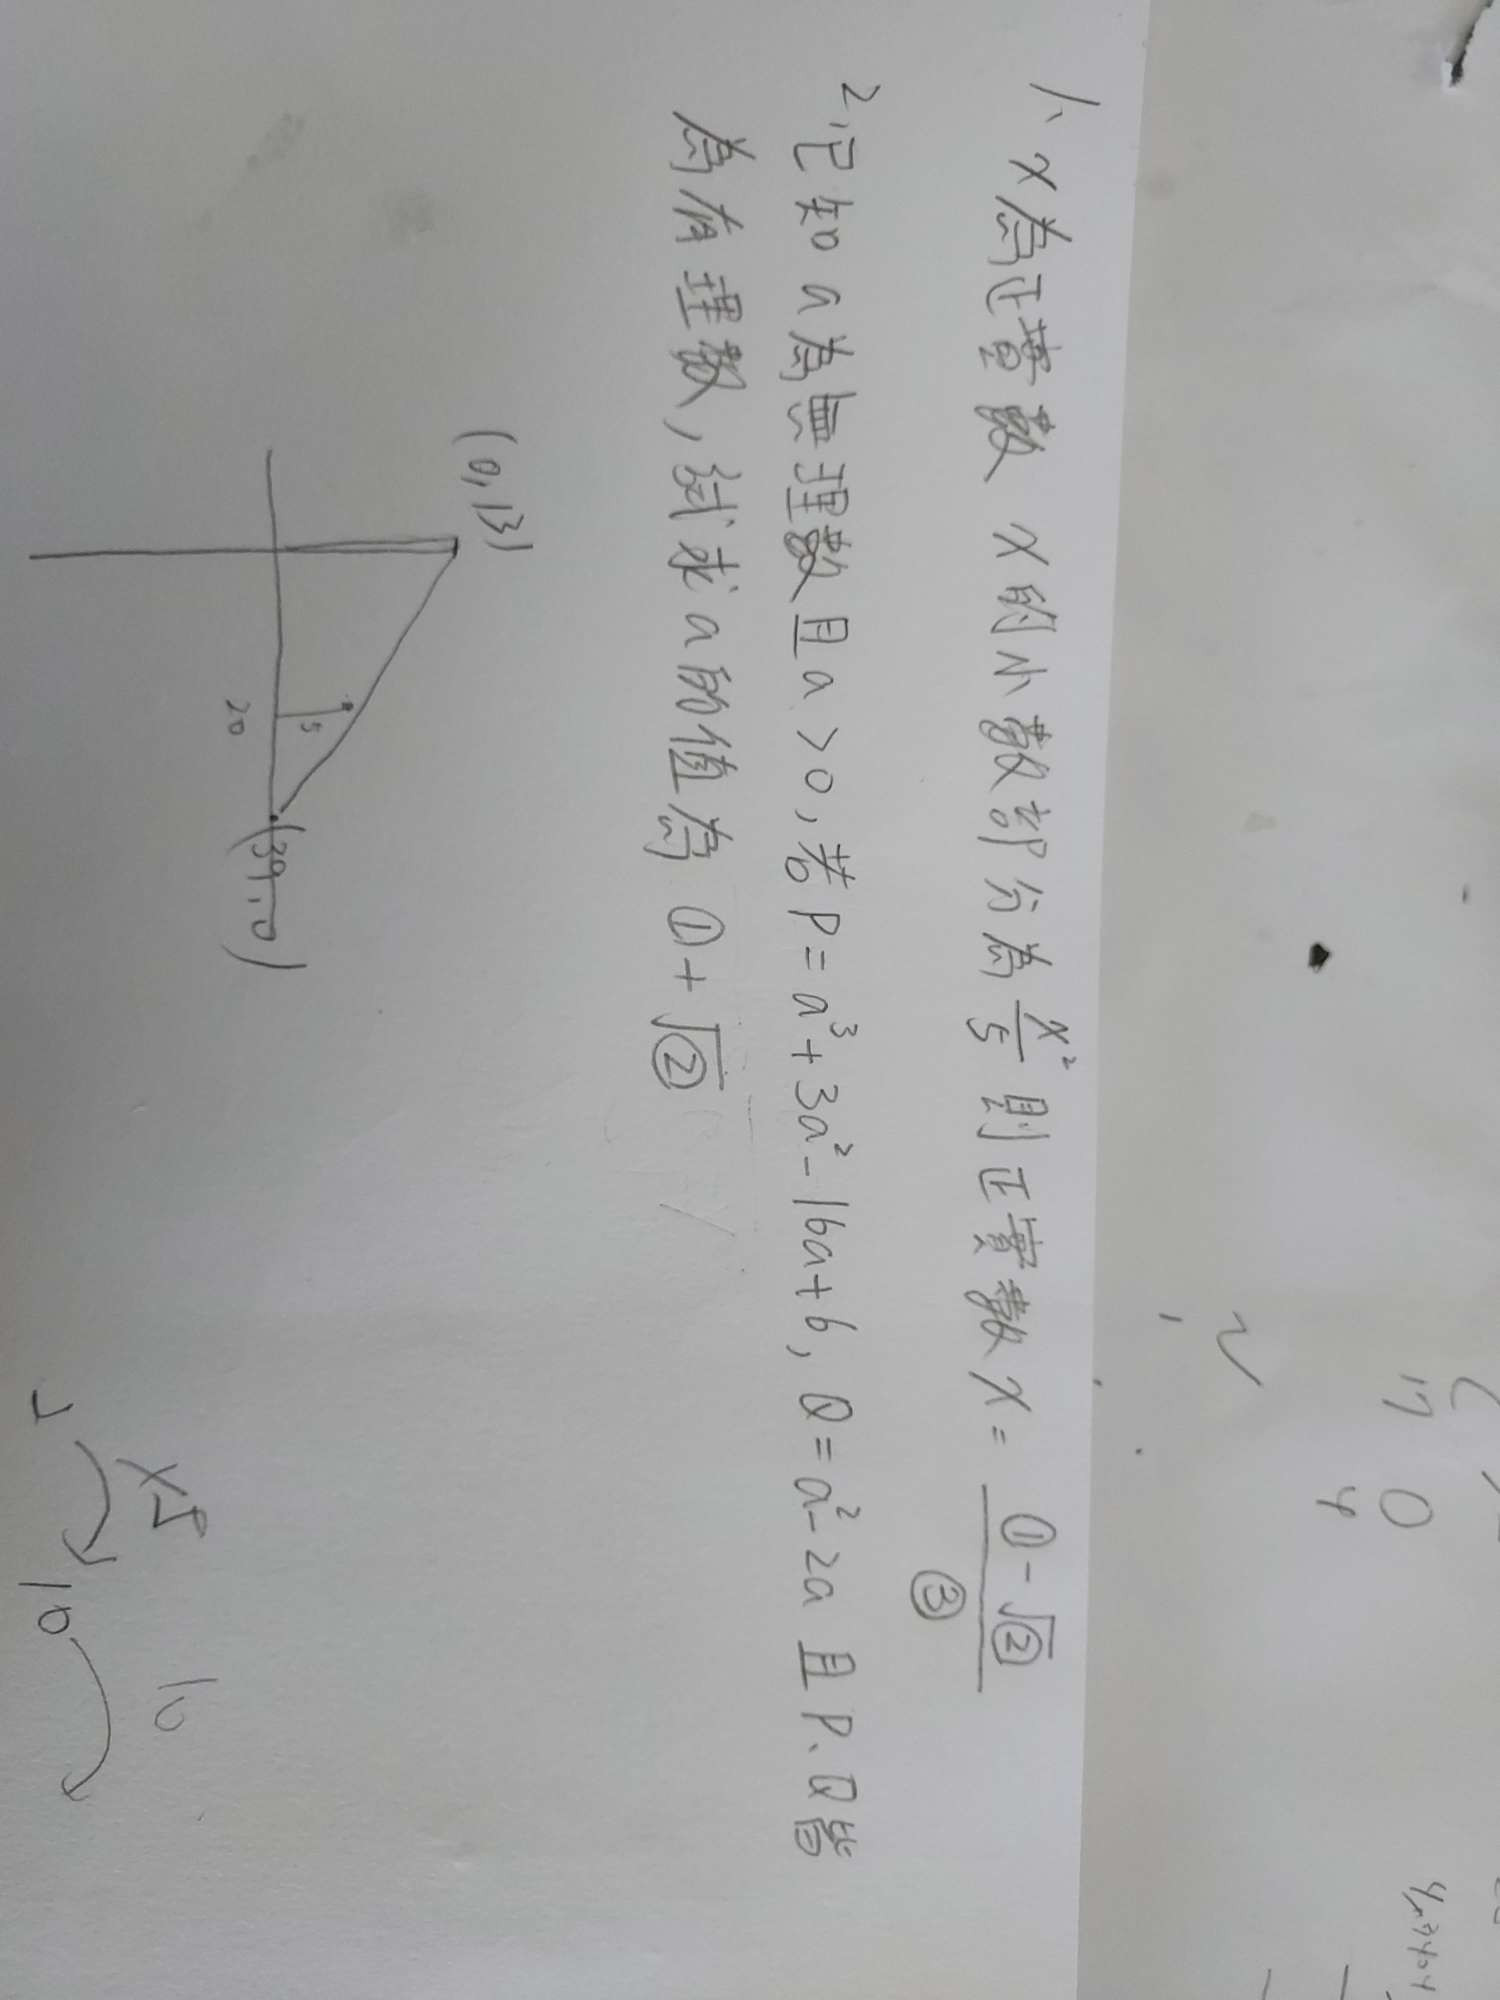 1、x為正實數 x的小數部分為 x²/5 則正實數 x = (①-√②)/③
2,已知 a 為無理數且 a>0, 若 P=a³+3a²-16a+6, Q=a²-2a 且 P、Q皆
為有理數, 試求 a 的值為 ①+√②
(0,13)
5
20
(39,0)
x5
10
10
17 0
4